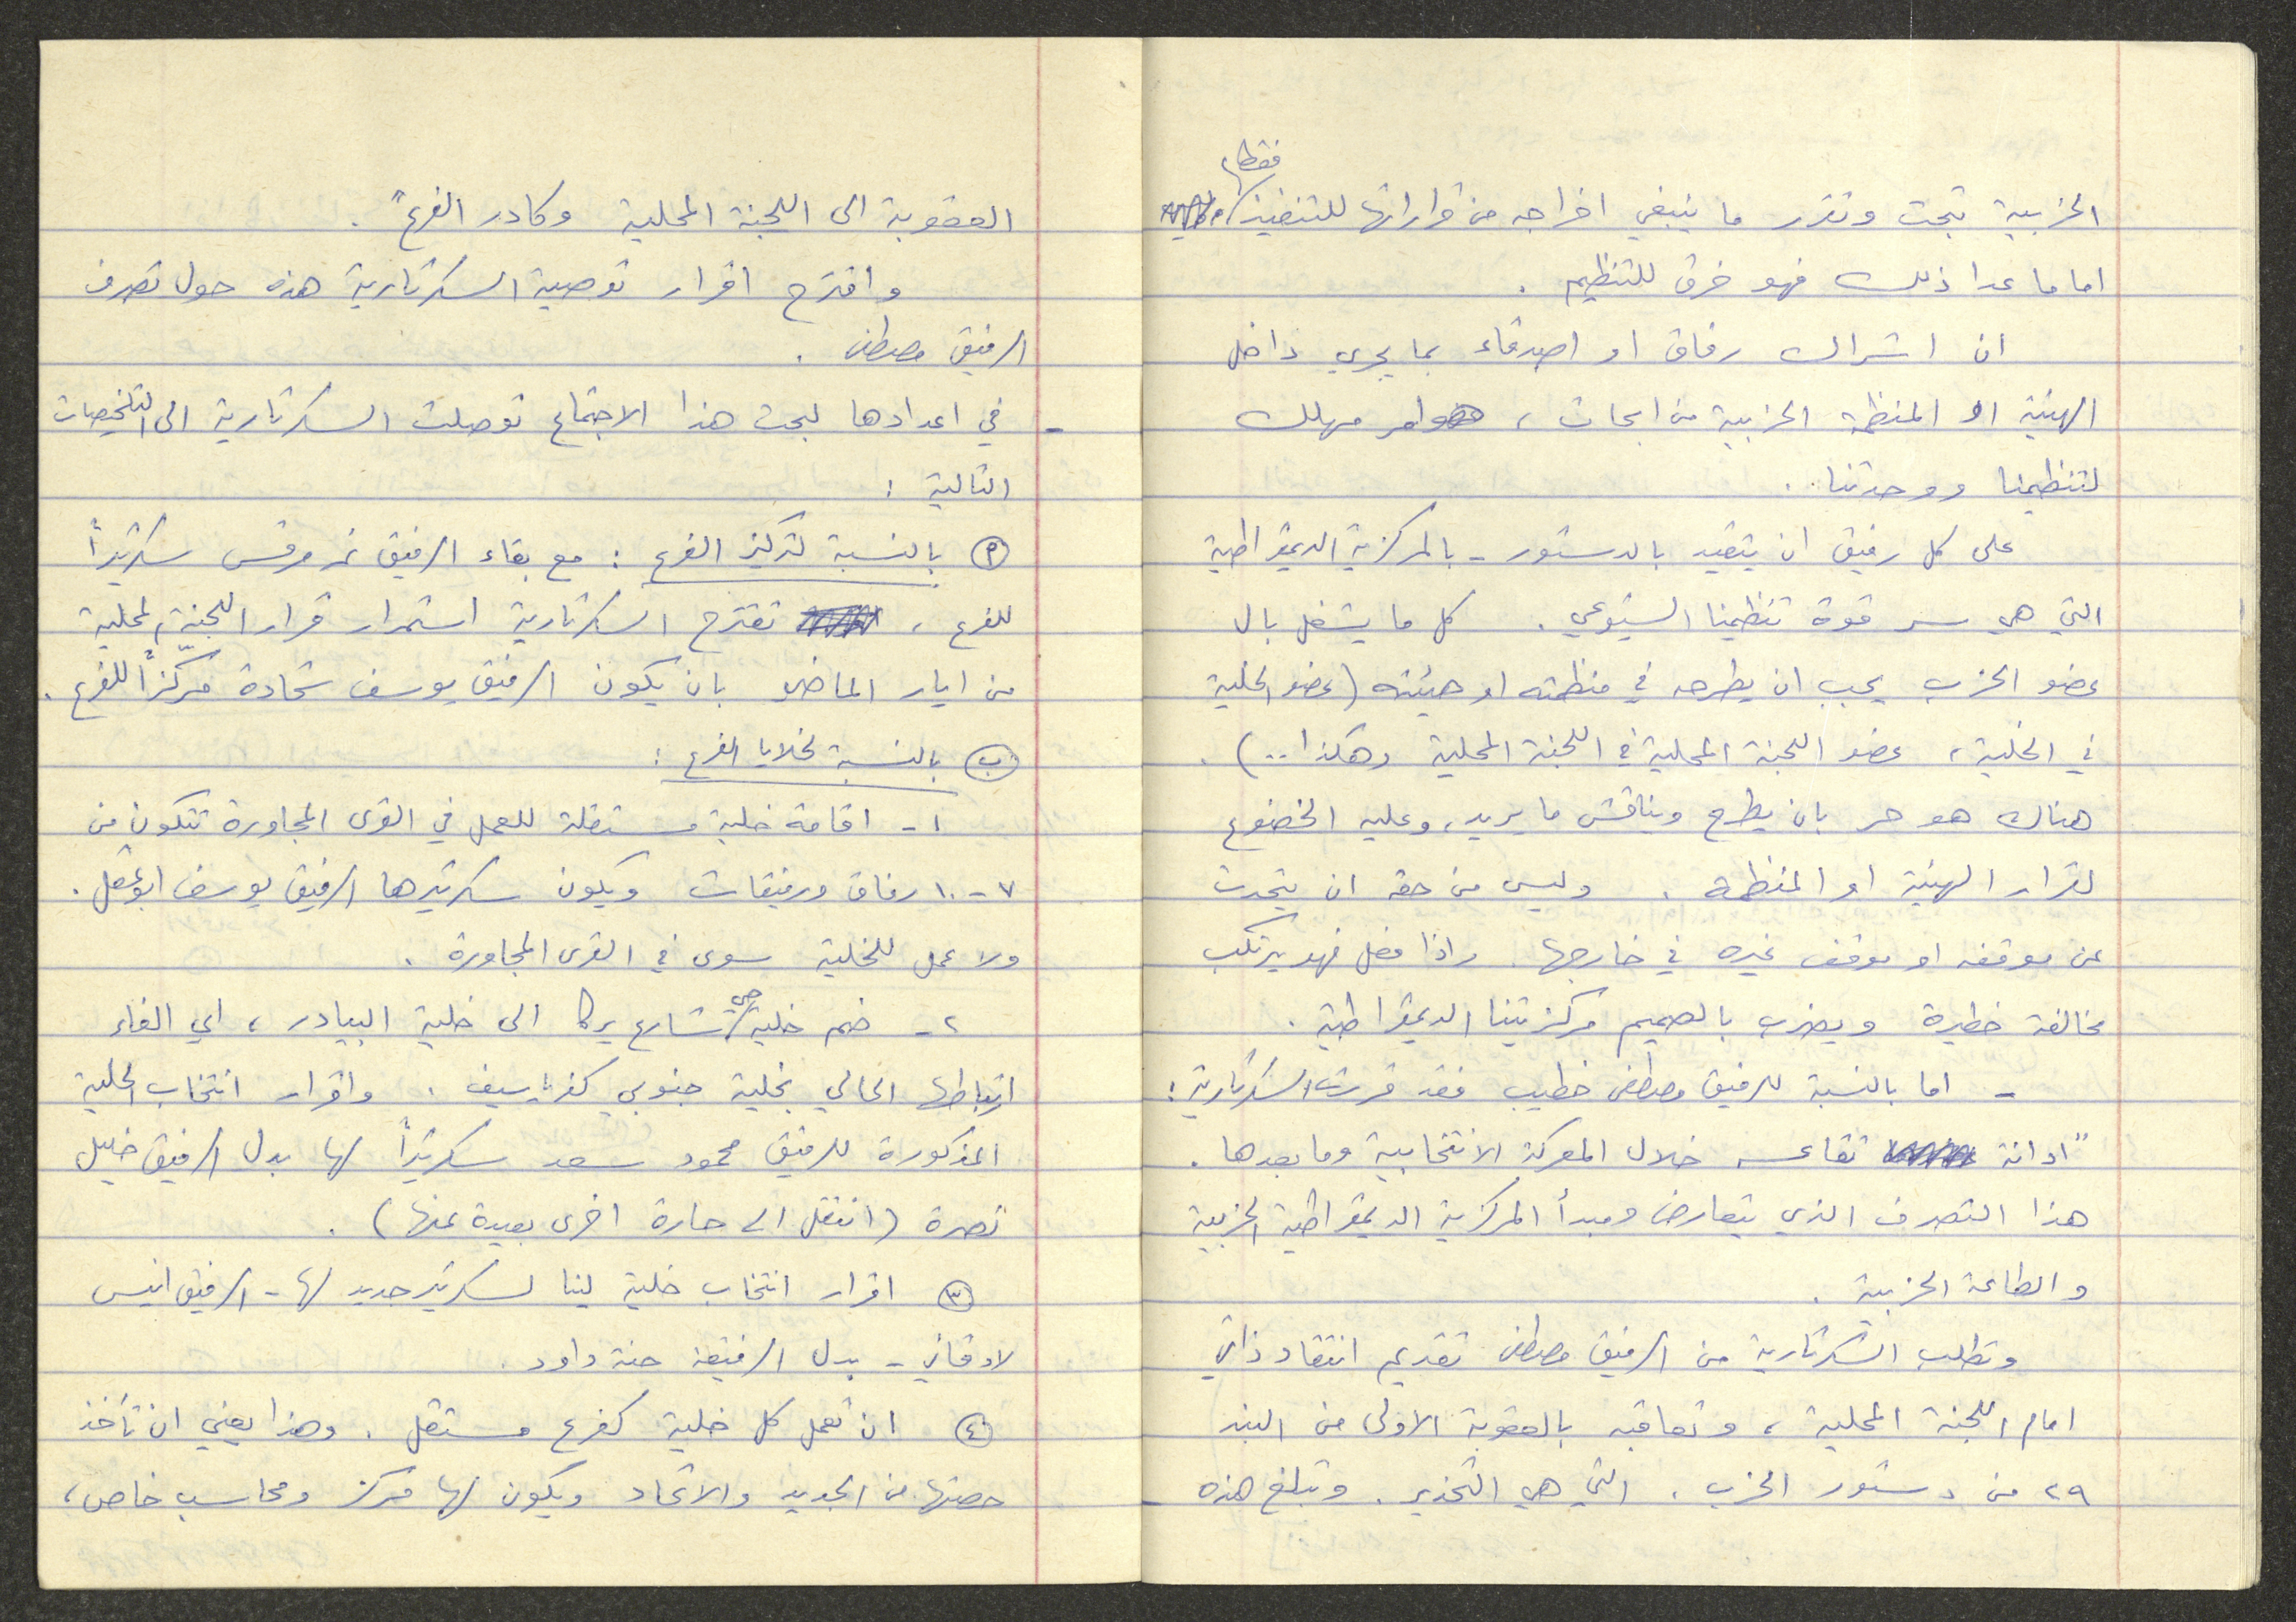 الحزبية تبحث وتقرر ما ينبغي اخراجه من قراراتها للتنفيذ فقط،
اما ما عدا ذلك فهو خرق للتنظيم .
ان اشراك رفاق او اصدقاء بما يجري داخل
الهيئة او المنظمة الحزبية من ابحاث ، هو امر مهلك
لتنظيمنا ووحدتنا .
على كل رفيق ان يتقيد بالدستور - بالمركزية الديمقراطية
التي هي سر قوة تنظيمنا الشيوعي . كل ما يشغل بال
عضو الحزب يجب ان يطرحه في منظمته او هيئته (عضو الخلية
في الخلية ، عضو اللجنة المحلية في اللجنة المحلية وهكذا ..) .
هناك هو حر بان يطرح ويناقش ما يريد، وعليه الخضوع
لقرار الهيئة او المنظمة . وليس من حقه ان يتحدث
عن موقفه او موقف غيره في خارجها . واذا فعل فهو يرتكب
مخالفة خطيرة ويضرب بالصميم مركزيتنا الديمقراطية .
- اما بالنسبة للرفيق مصطفى خطيب فقد قررت السكرتارية :
"ادانة تقاعسه خلال المعركة الانتخابية وما بعدها .
هذا التصرف الذي يتعارض ومبدأ المركزية الديمقراطية الحزبية
والطاعة الحزبية .
وتطلب السكرتارية من الرفيق مصطفى تقديم انتقاد ذاتي
امام اللجنة المحلية ، وتعاقبه بالعقوبة الاولى من البند
٢٩ من دستور الحزب ، التي هي التحذير . وتبلغ هذه
العقوبة الى اللجنة المحلية وكادر الفرع" .
واقترح اقرار توصية السكرتارية هذه حول تصرف
الرفيق مصطفى .
- في اعدادها لبحث هذا الاجتماع توصلت السكرتارية الى التلخيصات
التالية :
(أ) بالنسبة لتركيز الفرع : مع بقاء الرفيق نمر مرقس سكرتيراً
للفرع ، تقترح السكرتارية استمرار قرار اللجنة المحلية
من ايار الماضي بان يكون الرفيق يوسف شحادة مركزاً للفرع .
(ب) بالنسبة لخلايا الفرع :
١- اقامة خلية مستقلة للعمل في القرى المجاورة تتكون من
٧-١٠ رفاق ورفيقات ويكون سكرتيرها الرفيق يوسف ابو عقل .
ولا عمل للخلية سوى في القرى المجاورة .
٢- ضم خلية حي شارع يركا الى خلية البيادر ، اي الغاء
ارتباطها الحالي بخلية جنوبي كفرياسيف . واقرار انتخاب الخلية
المذكورة للرفيق محمود سعد سكرتيراً لها بدل الرفيق خليل
نصرة (انتقل الى حارة اخرى بعيدة عنها) .
(٣) اقرار انتخاب خلية لينا لسكرتير جديد لها - الرفيق انيس
لادقاني - بدل الرفيقة حنة داود .
(٤) ان تعمل كل خلية كفرع مستقل . وهذا يعني ان تأخذ
حصتها من الجديد والاتحاد ويكون لها مركز ومحاسب خاص ،